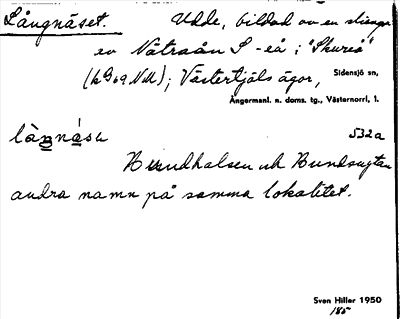 Långnäset. Udde, bildad av en slinga
av Nätraån S -eå i "Skureå"
(k G 69 NW); Västertjäls ägor, Sidensjö sn,
Ångermanl. n. doms. tg., Västernorrl. l.
lànnásɯ 532a
Hundhalsen och Hundsvgtan
andra namn på samma lokalitet.
Sven Hiller 1950
185